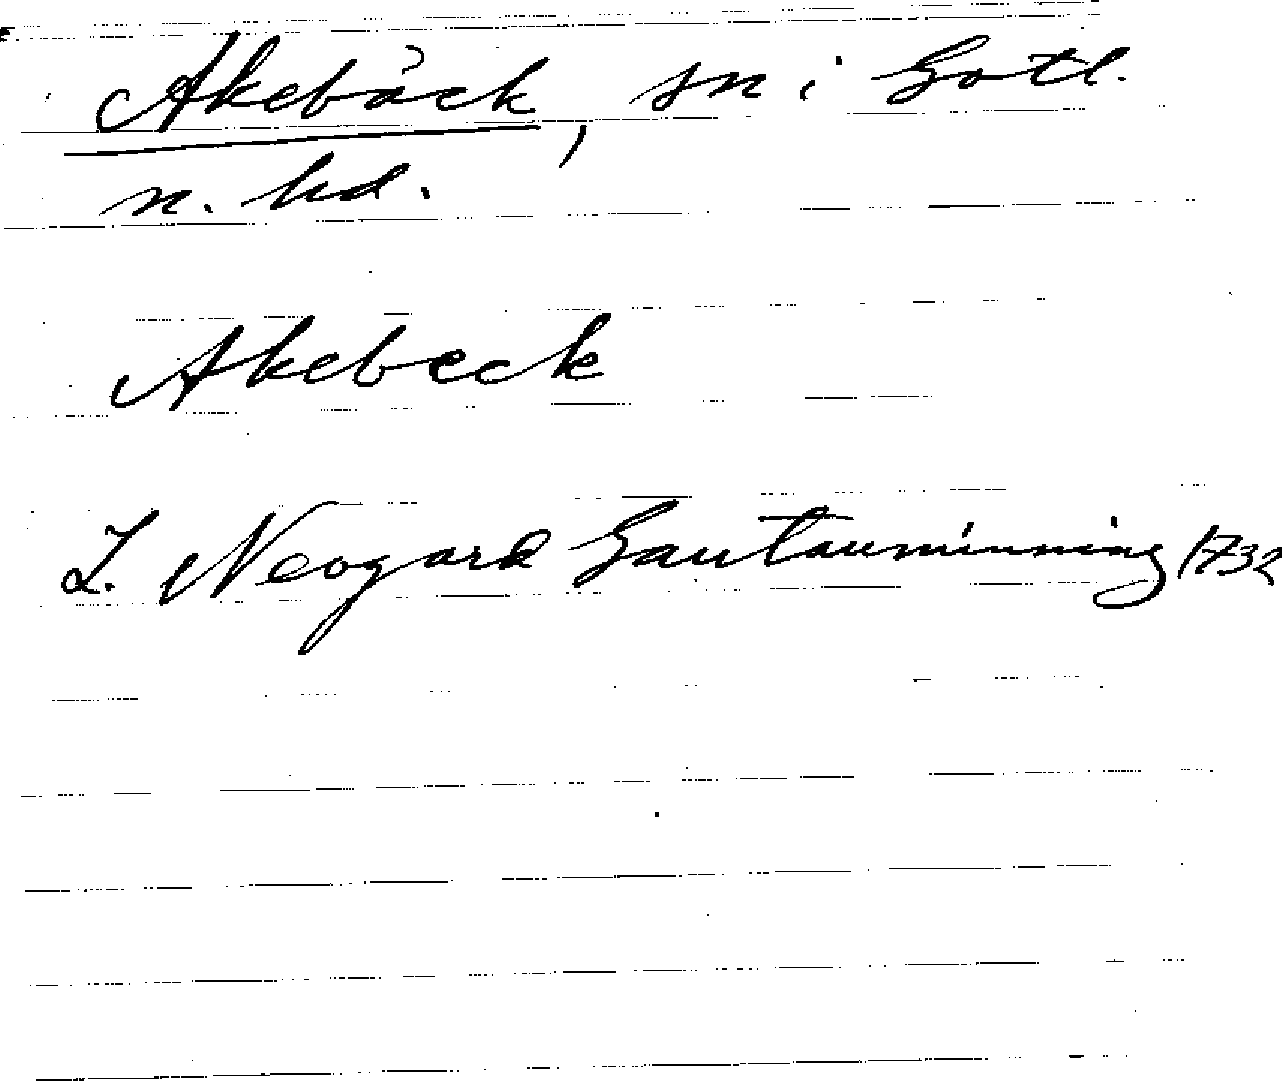 Akebäck, sn i Gotl.
n. hd.
Akebeck
L. Neogard Gautauminning 1732